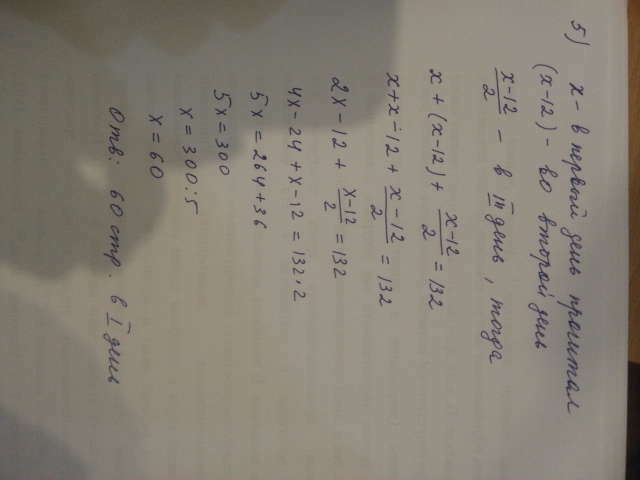 5) х - в первый день прочитал
(х-12) - во второй день
(х-12)/2 - в III день, тогда
х + (х-12) + (х-12)/2 = 132
х+х-12 + (х-12)/2 = 132
2х-12 + (х-12)/2 = 132
4х-24+х-12 = 132·2
5х = 264+36
5х = 300
х = 300:5
х = 60
Отв: 60 стр. в I день